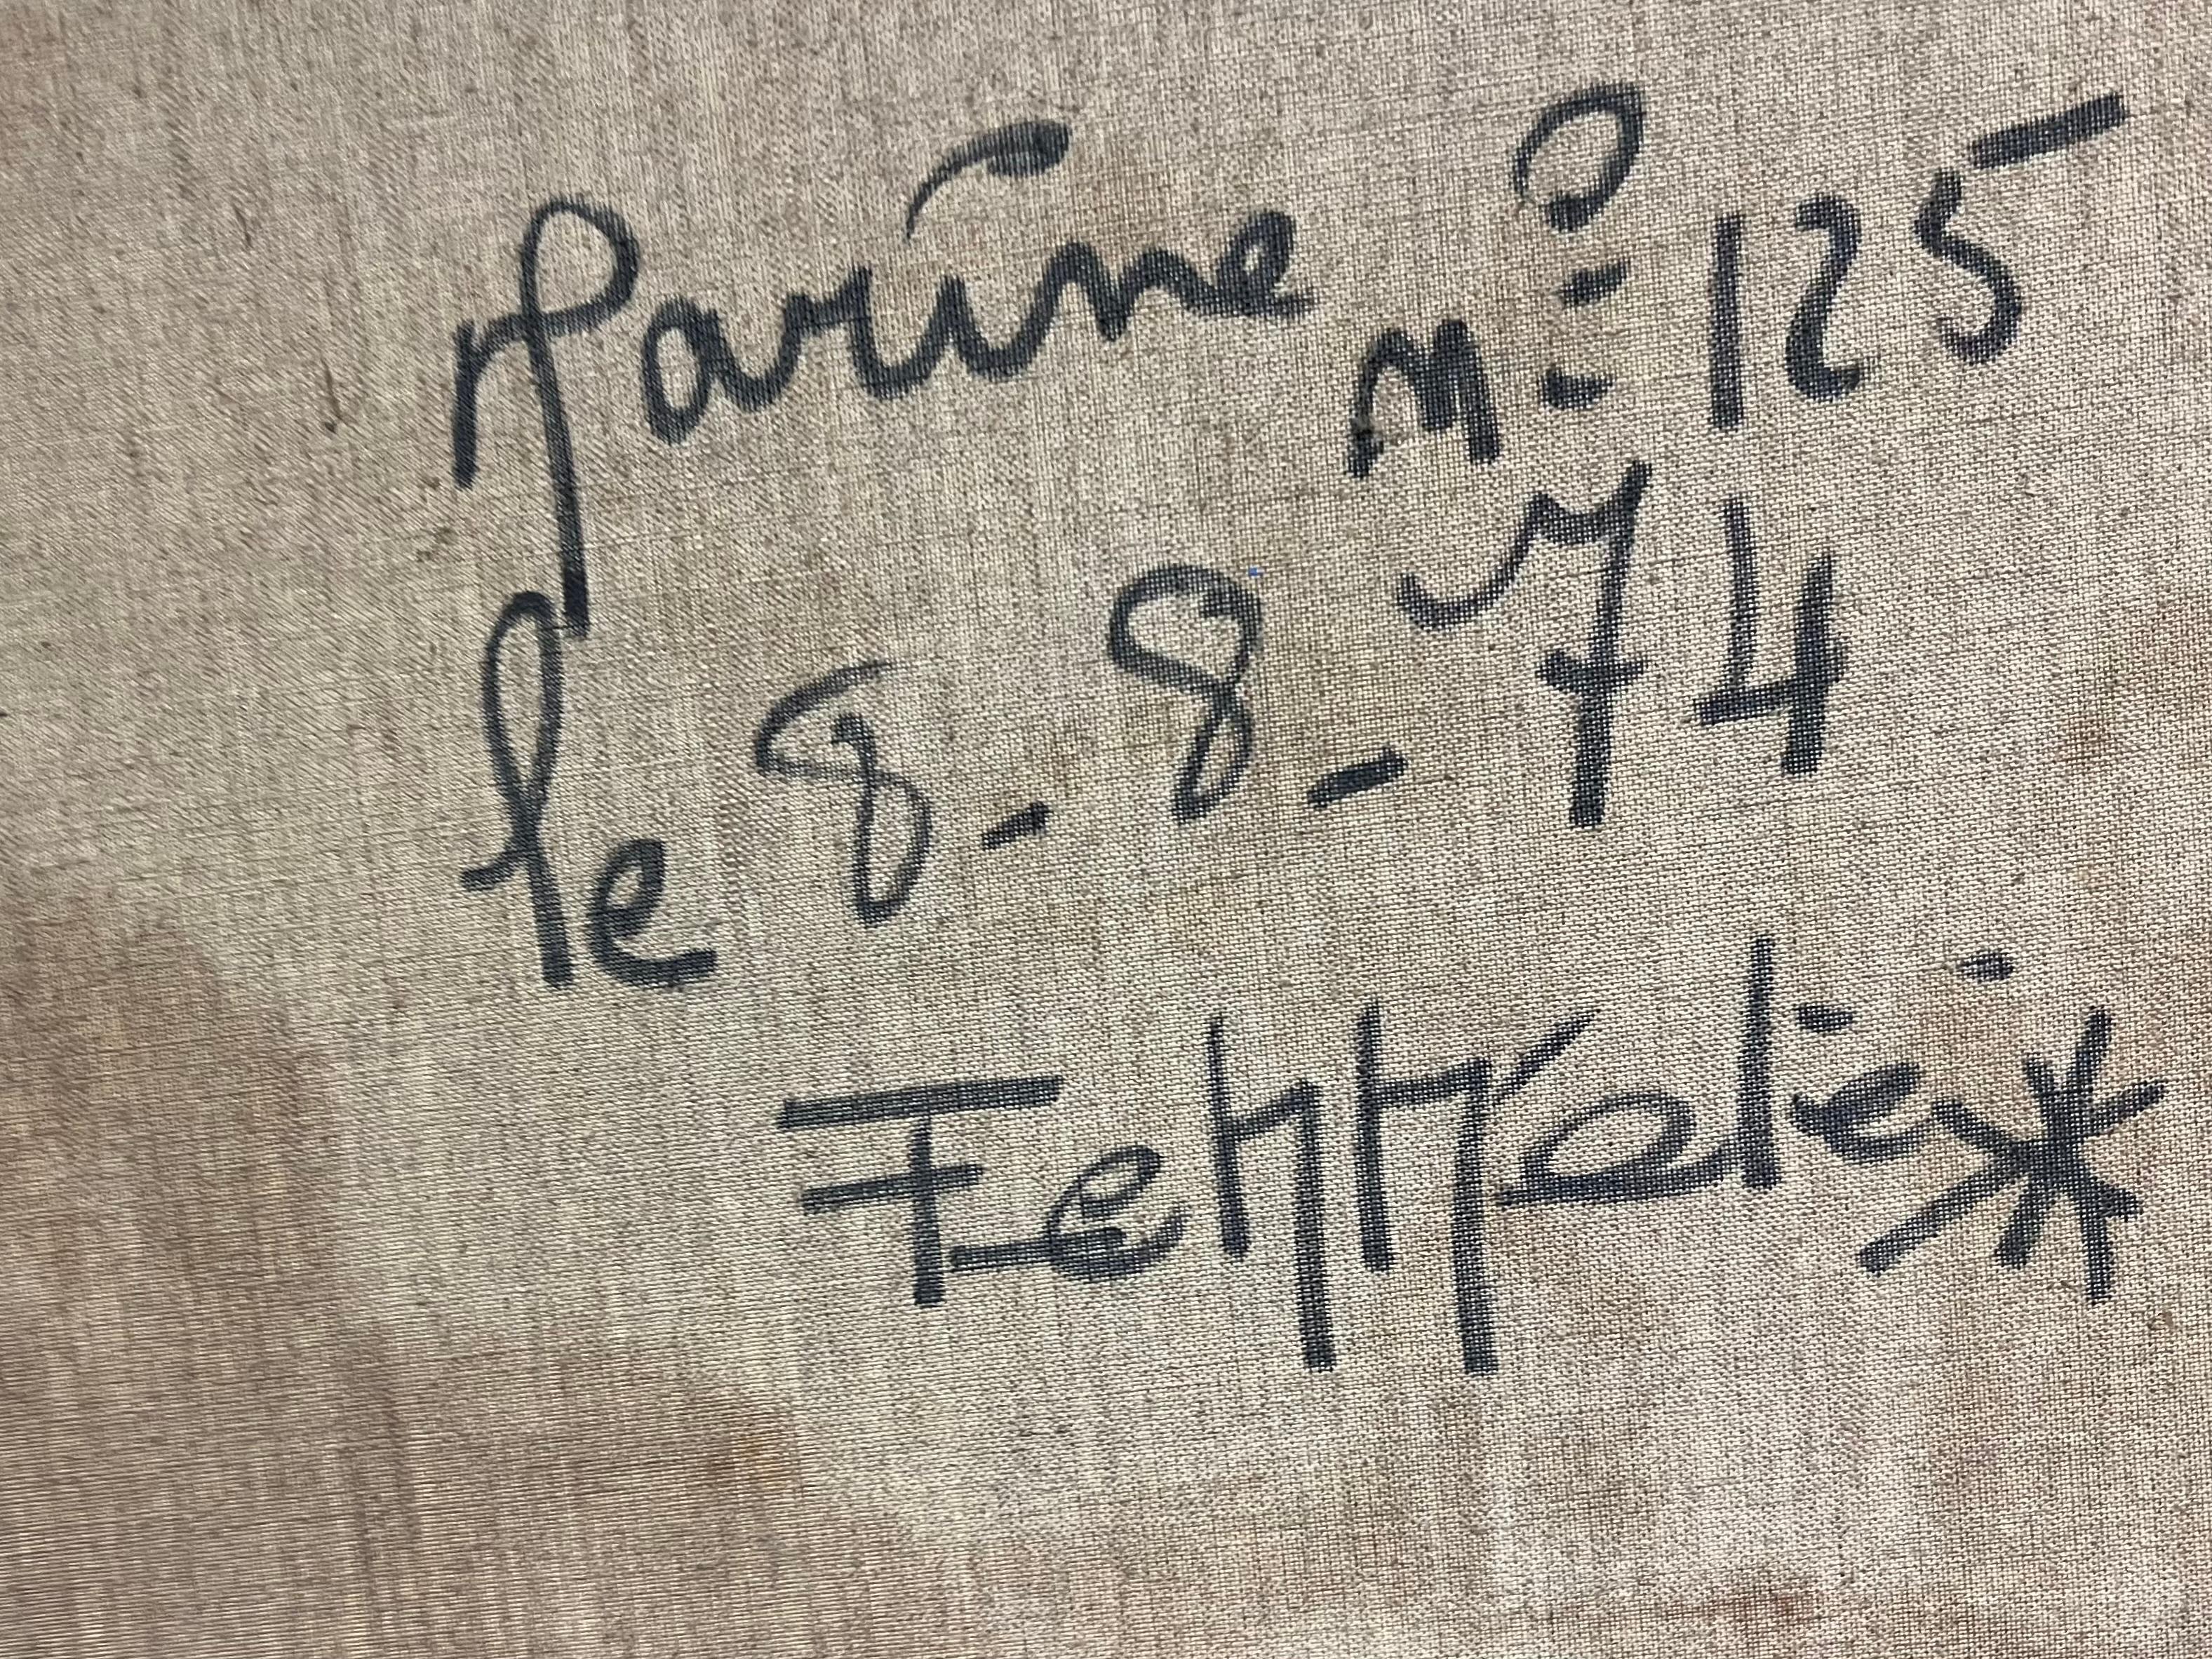 Marine n° 125
le 8-8-74